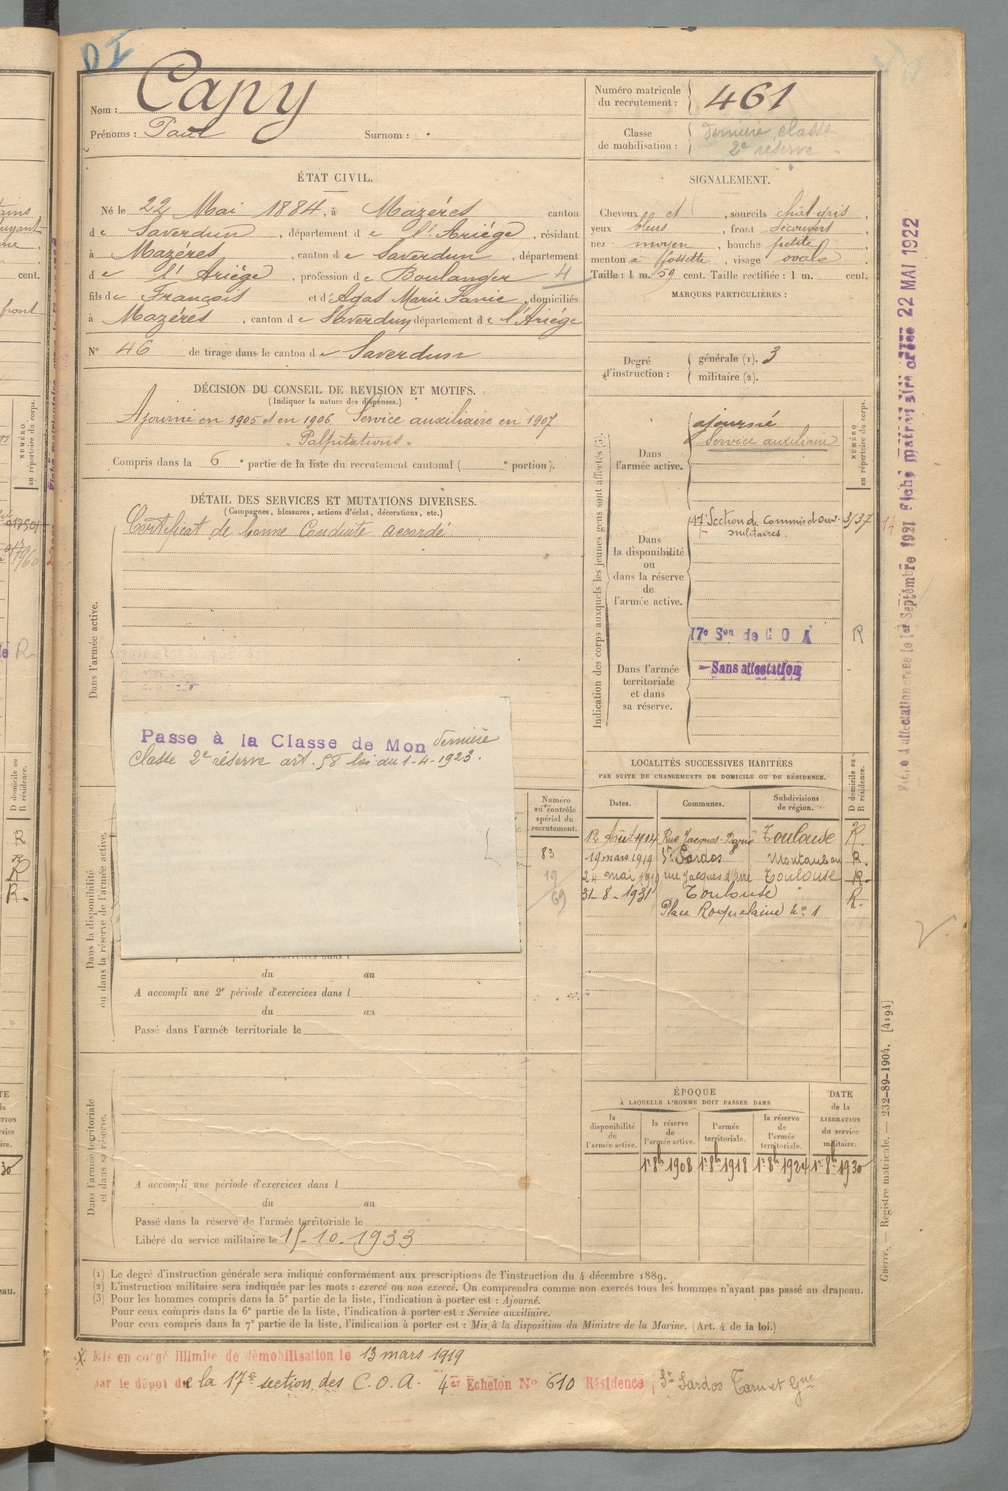 DI
Nom : Capy
Prénoms : Paul Surnom :
Numéro matricule du recrutement : 461
Classe de mobilisation : dernière classe 2e réserve
ÉTAT CIVIL.
Né le 22 Mai 1884, à Mazéres canton
de Saverdun, département de l'Ariége, résidant
à Mazéres, canton de Saverdun, département
de l'Ariége, profession de Boulanger 4
fils de François et d'Agas Marie Fanie, domiciliés
à Mazéres, canton de Saverdun, département de l'Ariége
N° 46 de tirage dans le canton de Saverdun
SIGNALEMENT.
Cheveux et, sourcils chât gris,
yeux bleus, front découvert,
nez moyen, bouche petite,
menton à fossette, visage ovale
Taille : 1 m. 59 cent. Taille rectifiée : 1 m. cent.
MARQUES PARTICULIÈRES :
Degré d'instruction : générale (1). 3
militaire (2).
DÉCISION DU CONSEIL DE REVISION ET MOTIFS.
(Indiquer la nature des dispenses.)
Ajourné en 1905 et en 1906. Service auxiliaire en 1907
" Palpitations "
Compris dans la 6e partie de la liste du recrutement cantonal ( e portion).
DÉTAIL DES SERVICES ET MUTATIONS DIVERSES.
(Campagnes, blessures, actions d'éclat, décorations, etc.)
Certificat de bonne Conduite accordé.
Dans l'armée active.
Passe à la Classe de Mon dernière
classe 2e réserve art. 58 loi du 1-4-1923.
Indication des corps auxquels les jeunes gens sont affectés (3).
NUMÉRO au répertoire du corps.
Dans l'armée active.
ajourné
Service auxiliaire
Dans la disponibilité ou dans la réserve de l'armée active.
17e Section de Commis et Ouv. militaires. 3/37
17e Son de C O A R
Dans l'armée territoriale et dans sa réserve.
Sans affectation
LOCALITÉS SUCCESSIVES HABITÉES
PAR SUITE DE CHANGEMENTS DE DOMICILE OU DE RÉSIDENCE.
Dates. Communes. Subdivisions de région. D domicile ou R résidence.
12 Août 1914 Rue Jacques-Darré Toulouse R.
19 mars 1919 St Sardos Montauban R.
24 mai 1919 Toulouse R.
31-8-1931 Toulouse R.
Place Roquelaine No 1
Numéro au contrôle spécial du recrutement.
83
19
69
Dans la disponibilité ou dans la réserve de l'armée active.
du au
A accompli une 2e période d'exercices dans l
du au
Passé dans l'armée territoriale le
Dans l'armée territoriale et dans sa réserve.
A accompli une période d'exercices dans l
du au
Passé dans la réserve de l'armée territoriale le
Libéré du service militaire le 15-10-1933
ÉPOQUE
À LAQUELLE L'HOMME DOIT PASSER DANS
la disponibilité de l'armée active.
la réserve de l'armée active.
l'armée territoriale.
la réserve de l'armée territoriale.
DATE de la LIBERATION du service militaire.
1er 8b 1908 1er 8b 1918 1er 8b 1924 1er 8b 1930
(1) Le degré d'instruction générale sera indiqué conformément aux prescriptions de l'instruction du 4 décembre 1889.
(2) L'instruction militaire sera indiquée par les mots : exercé ou non exercé. On comprendra comme non exercés tous les hommes n'ayant pas passé au drapeau.
(3) Pour les hommes compris dans la 5e partie de la liste, l'indication à porter est : Ajourné.
Pour ceux compris dans la 6e partie de la liste, l'indication à porter est : Service auxiliaire.
Pour ceux compris dans la 7e partie de la liste, l'indication à porter est : Mis à la disposition du Ministre de la Marine. (Art. 4 de la loi.)
Mis en congé illimité de démobilisation le 13 mars 1919
par le dépôt de la 17e section des C.O.A. 4e Echelon N° 610 Résidence St Sardos Tarn et Gne
Guerre. — Registre matricule. — 232-89-1904. [4194]
Septembre 1921 Fiche matricule créée 22 MAI 1922